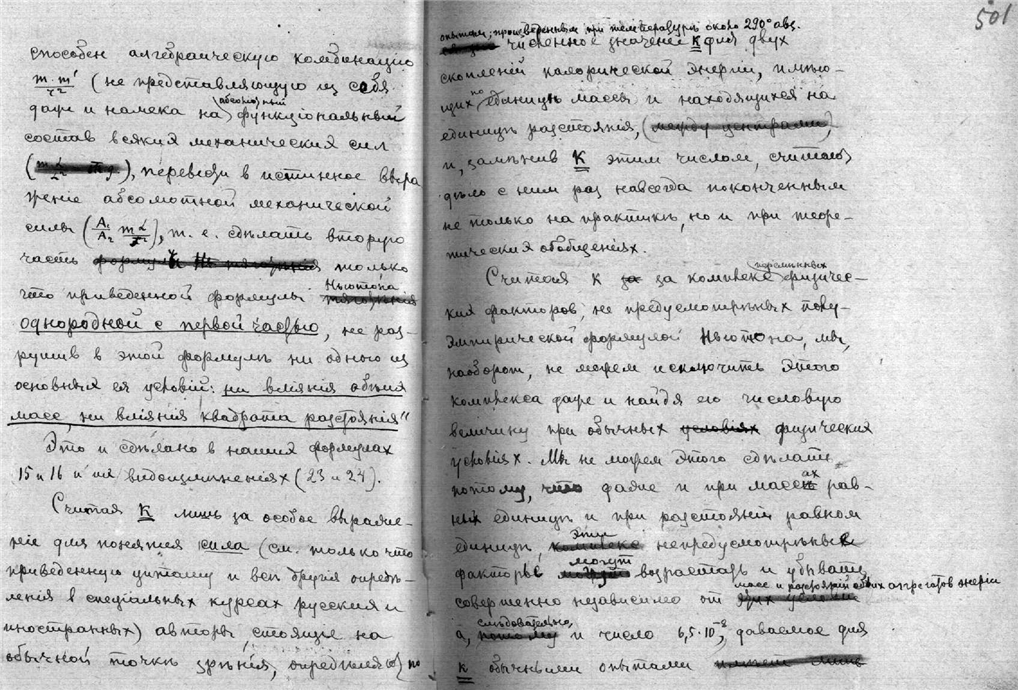 способен алгебраическую комбинацию
m·m'/r² (не представляющую из себя
даже и намека на (абсолютный) функціональный
состав всякия механическия сил
), переводя в истинное выра
жение абсолютной механической
силы (A₁/A₂ m/r²), т. е. сдѣлать вторую
часть только
что приведенной формулы Ньютона
однородной с первой частью, не раз-
рушив в этой формулѣ ни одного из
основных ея условій: ни вліянія обѣих
масс, ни вліянія квадрата разстоянія"
Это и сдѣлано в наших формулах
15 и 16 и их видоизмѣненіях (23 и 24).
Считая К лишь за особое выраже-
ніе для понятия сила (см. только что
приведенную цитату и всѣ другія опредѣ-
ленія в спеціальных курсах русских и
иностранных) авторы, стоящие на
обычной точкѣ зрѣнія, опредѣляют по
501
опытам, произведенным при температурѣ около 290° абс.
численное значеніе К для двух
скопленій калорической энергіи, имѣю-
щих по единицѣ массы и находящихся на
единицѣ разстоянія, (между центрами)
и, замѣнив К этим числом, считают
дѣло с ним раз навсегда поконченным
не только на практикѣ, но и при теоре-
тических обобщеніях.
Считая К за комплекс перемѣнных физичес-
ких факторов, не предусмотрѣнных полу-
эмпирической формулой Ньютона, мы,
наоборот, не можем исключить этого
комплекса даже и найдя его числовую
величину при обычных условіях физических
условіях. Мы не можем этого сдѣлать
потому, что даже и при массах рав-
ных единицѣ и при разстояніи равном
единицѣ, эти непредусмотрѣнные
факторы могут возрастать и убывать
совершенно независимо от масс и разстояній обоих аггрегатов энергіи
а, слѣдовательно, и число 6,5·10⁻⁸, даваемое для
К обычными опытами